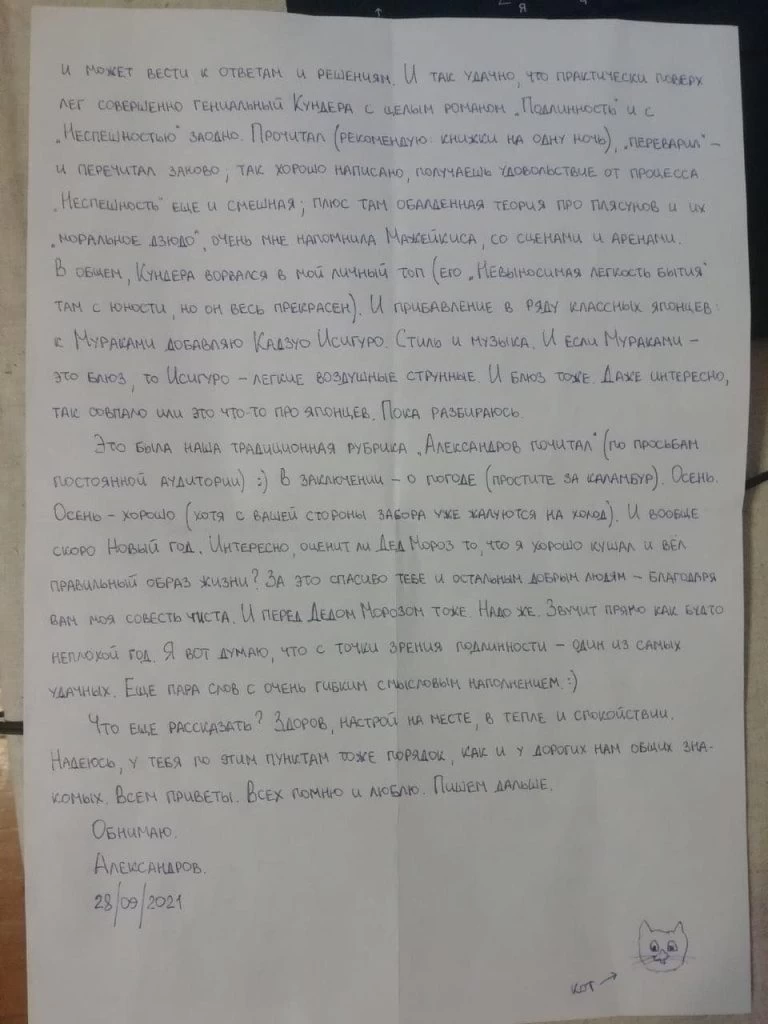 и может вести к ответам и решениям. И так удачно, что практически поверх
лег совершенно гениальный Кундера с целым романом „Подлинность" и с
„Неспешностью" заодно. Прочитал (рекомендую: книжки на одну ночь), „переварил" –
и перечитал заново; так хорошо написано, получаешь удовольствие от процесса
„Неспешность" еще и смешная; плюс там обалденная теория про плясунов и их
„моральное дзюдо", очень мне напомнила Мажейкиса, со сценами и аренами.
В общем, Кундера ворвался в мой личный топ (его „Невыносимая легкость бытия"
там с юности, но он весь прекрасен). И прибавление в ряду классных японцев:
к Мураками добавляю Кадзуо Исигуро. Стиль и музыка. И если Мураками –
это блюз, то Исигуро – легкие воздушные струнные. И блюз тоже. Даже интересно,
так совпало или это что-то про японцев. Пока разбираюсь.
Это была наша традиционная рубрика „Александров почитал" (по просьбам
постоянной аудитории) :) В заключении – о погоде (простите за каламбур). Осень.
Осень – хорошо (хотя с вашей стороны забора уже жалуются на холод). И вообще
скоро Новый год. Интересно, оценит ли Дед Мороз то, что я хорошо кушал и вёл
правильный образ жизни? За это спасибо тебе и остальным добрым людям – благодаря
вам моя совесть чиста. И перед Дедом Морозом тоже. Надо же. Звучит прямо как будто
неплохой год. Я вот думаю, что с точки зрения подлинности – один из самых
удачных. Еще пара слов с очень гибким смысловым наполнением. :)
Что еще рассказать? Здоров, настрой на месте, в тепле и спокойствии.
Надеюсь, у тебя по этим пунктам тоже порядок, как и у дорогих нам общих зна-
комых. Всем приветы. Всех помню и люблю. Пишем дальше.
Обнимаю.
Александров.
28/09/2021
кот